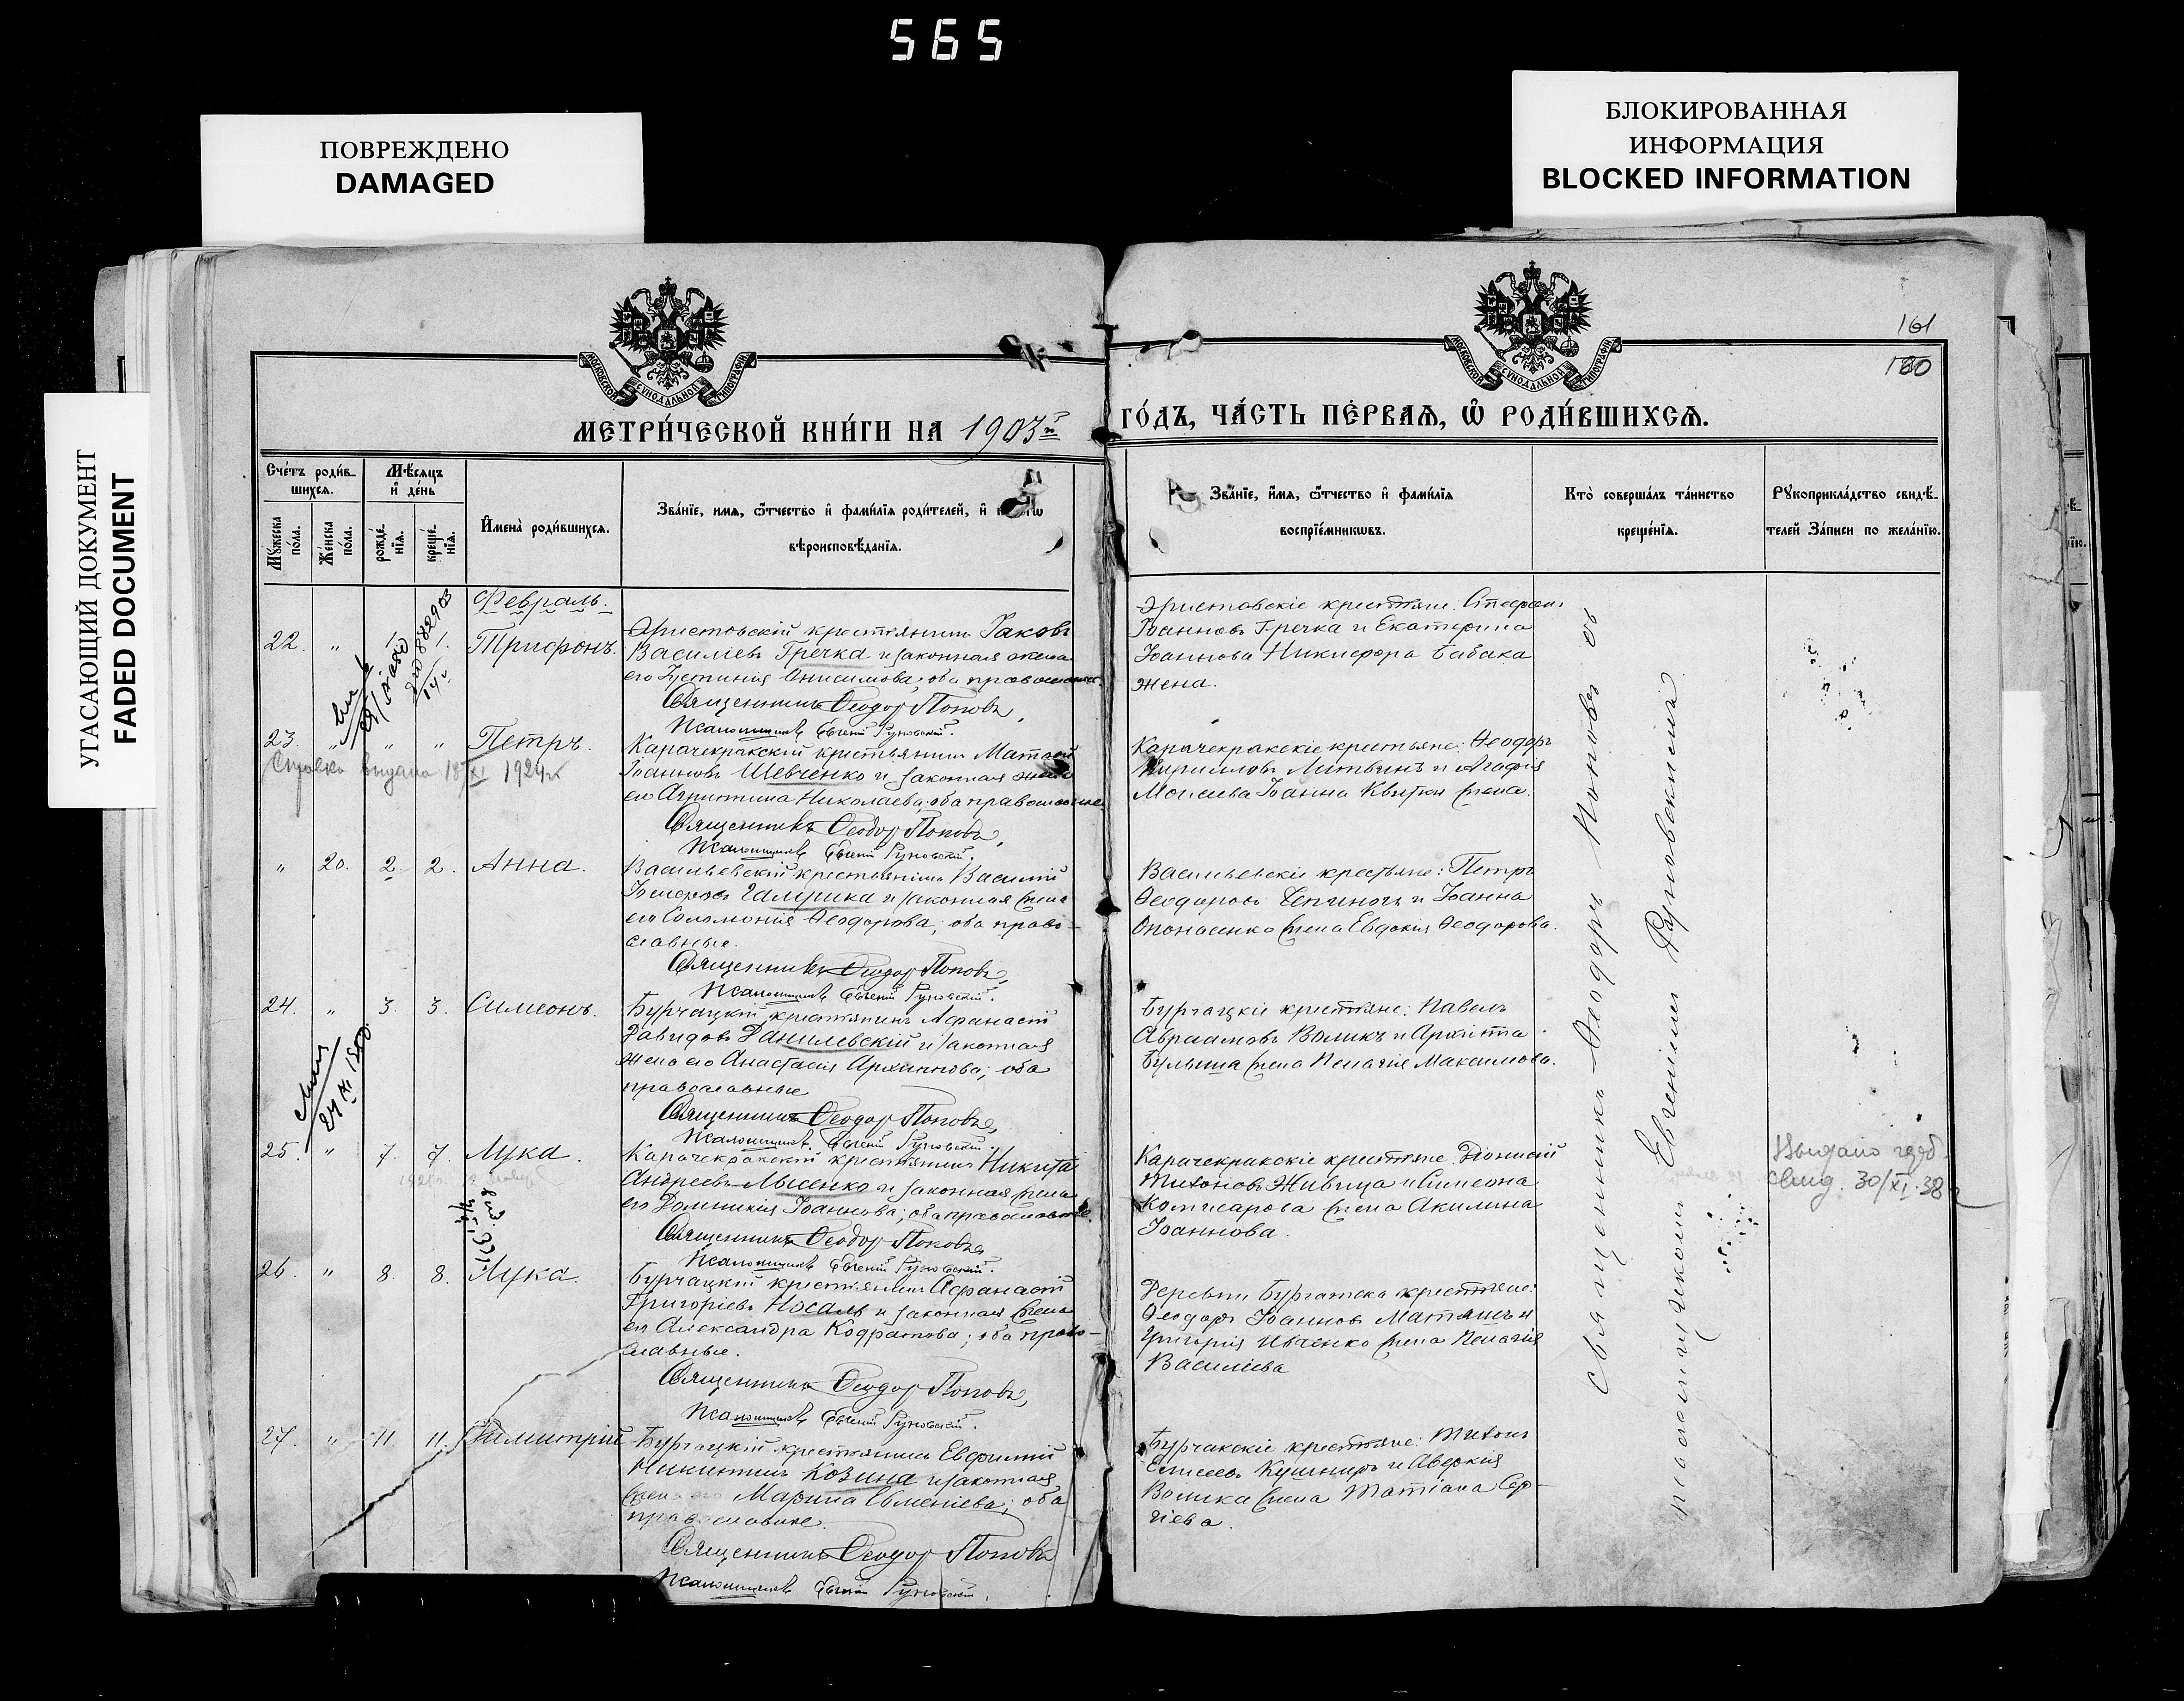 565
ПОВРЕЖДЕНО
DAMAGED
БЛОКИРОВАННАЯ
ИНФОРМАЦИЯ
BLOCKED INFORMATION
УГАСАЮЩИЙ ДОКУМЕНТ
FADED DOCUMENT
МОСКОВСКОЙ СУНОДАЛЬНОЙ ТИПОГРАФІИ
МОСКОВСКОЙ СУНОДАЛЬНОЙ ТИПОГРАФІИ
161
180
МЕТРИ́ЧЕСКОЙ КНИ́ГИ НА 1903й
ГО́ДЪ, ЧА́СТЬ ПЕ́РВАЯ, Ѡ РОДИ́ВШИХСЯ.
Сче́тъ роди́в-
шихся.
Мѣсяцъ
и де́нь
Му́жеска по́ла.
Же́нска по́ла.
рожде́нія.
креще́нія.
Имена̀ роди́вшихся.
Зва́ніе, имя, ѿтчество и фами́лія роди́телей, и
вѣроисповѣданія.
Зва́ніе, имя, ѿтчество и фами́лія
воспріе́мниковъ.
Кто̀ соверша́лъ та́инство
креще́нія.
Рукоприкла́дство свидѣ-
телей За́писи по жела́нію.
Февраль.
22. " 1. 1. Трифонъ.
Эристовскій крестьянинъ Іаковъ
Василіевъ Гречка и законная жена
его Іустинія Онисимова; оба православные.
Священникъ Ѳеодоръ Поповъ,
Псаломщикъ Евгеній Руновскій.
Эристовскіе крестьяне: Стефанъ
Іоанновъ Гречка и Екатерина
Іоаннова Никифора Бабака
жена.
23. " " " Петръ.
Справка выдана 18/XI 1924г
Карачекракскій крестьянинъ Матѳей
Іоанновъ Шевченко и законная жена
его Агриппина Николаева; оба православные
Священникъ Ѳеодоръ Поповъ,
Псаломщикъ Евгеній Руновскій.
Карачекракскіе крестьяне: Ѳеодоръ
Кирилловъ Литвинъ и Агафія
Моисеева Іоанна Квитки жена.
" 20. 2 2. Анна.
Васильевскій крестьянинъ Василій
Галушка и законная жена
его Соломонія Ѳеодорова; оба право-
славные.
Священникъ Ѳеодоръ Поповъ,
Псаломщикъ Евгеній Руновскій.
Васильевскіе крестьяне: Петръ
Ѳеодоровъ и Іоанна
Опонасенко жена Евдокія Ѳеодорова.
24. " 3. 3. Симеонъ.
Бурчацкій крестьянинъ Аѳанасій
Давидовъ Данилевскій и законная
жена его Анастасія Архиппова; оба
православные
Священникъ Ѳеодоръ Поповъ,
Псаломщикъ Евгеній Руновскій.
Бурчацкіе крестьяне: Павелъ
Авраамовъ Воликъ и Архиппа
жена Пелагія Максимова.
25. " 7. 7. Лука.
Карачекракскій крестьянинъ Никита
Андреевъ Лысенко и законная жена
его Домникія Іоаннова; оба православные
Священникъ Ѳеодоръ Поповъ
Псаломщикъ Евгеній Руновскій.
Карачекракскіе крестьяне: Діонисій
Тихоновъ Живица и Симеона
Комисарова жена Акилина
Іоаннова.
Выдано
свид. 30/XI.38
26. " 8. 8. Лука.
Бурчацкій крестьянинъ Аѳанасій
Григоріевъ Носаль и законная жена
его Александра Кодратова; оба право-
славные.
Священникъ Ѳеодоръ Поповъ,
Псаломщикъ Евгеній Руновскій.
Деревни Бурчатска крестьяне:
Ѳеодоръ Іоанновъ и
Григорія Ивченко жена Пелагія
Василіева
27. " 11. 11. Димитрій
Бурчацкій крестьянинъ Евфимій
Никитинъ Козина и законная
жена его Марина Евменіева; оба
православные.
Священникъ Ѳеодоръ Поповъ
Псаломщикъ Евгеній Руновскій.
Бурчакскіе крестьяне: Тихонъ
Елисеевъ Кушниръ и Аверкія
Волика жена Татіана Сер-
гіева.
Священникъ Ѳеодоръ Поповъ съ
псаломщикомъ Евгеніемъ Руновскимъ